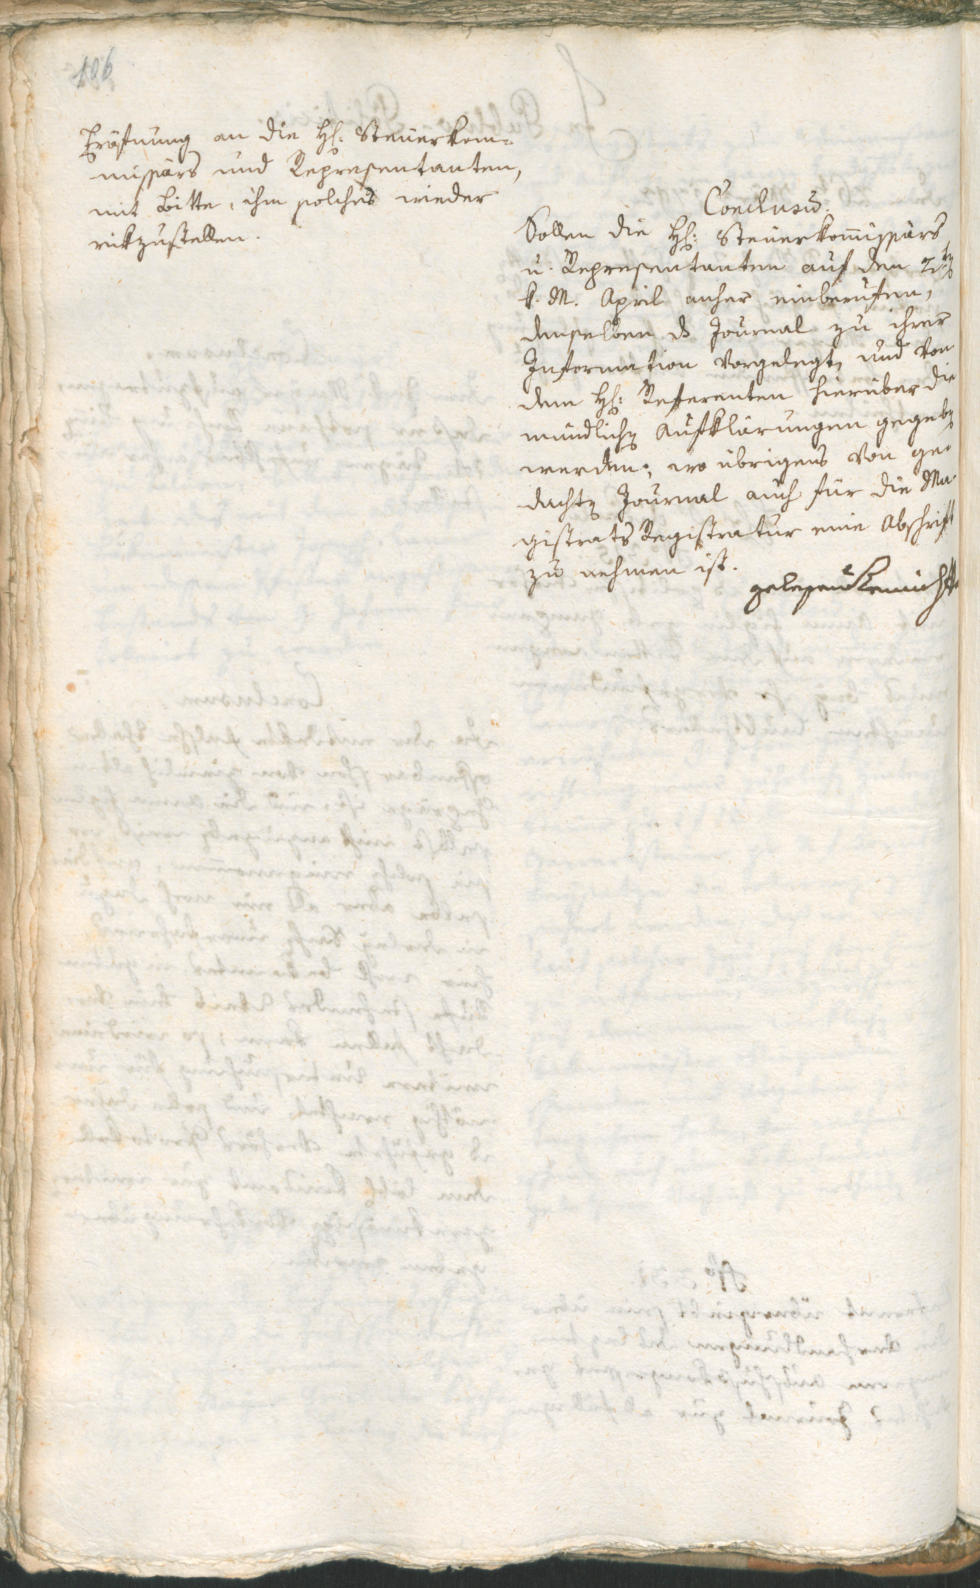 106
Eröfnung an die H͞: Steuerkom-
missärs und Representanten,
mit Bitte, ihm solches wieder
rükzustellen.
Conclusū.
Sollen die H͞: Steuerkom̄issärs
u. Representanten auf den 2ᵗ
k. M. April anher einberufen,
denselben ds Journal zu ihrer
Information vorgelegt, und von
dem H͞: Referenten hierüber die
mündliche Aufklärungen gegeben
werden; wo übrigens von ge-
dachten Journal auch für die Ma-
gistrats Registratur eine Abschrift
zu nehmen ist.
gelesen